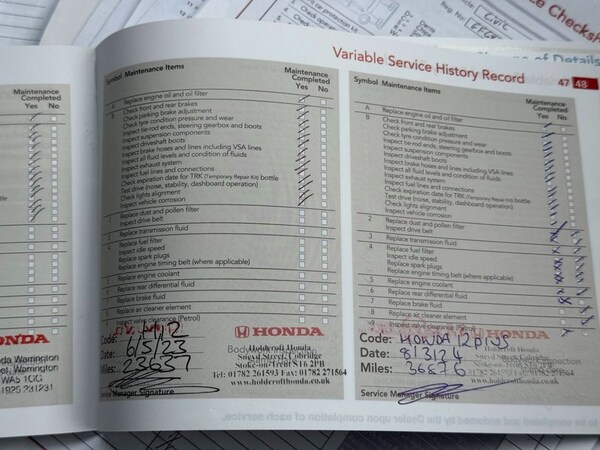 CIVIC
Service Checksh
Reg. No:
Variable Service History Record
47 48
Maintenance
Completed
Yes No
Symbol Maintenance Items
Maintenance
Completed
Yes No
A Replace engine oil and oil filter
B Check front and rear brakes
Check parking brake adjustment
Check tyre condition pressure and wear
Inspect tie-rod ends, steering gearbox and boots
Inspect suspension components
Inspect driveshaft boots
Inspect brake hoses and lines including VSA lines
Inspect all fluid levels and condition of fluids
Inspect exhaust system
Inspect fuel lines and connections
Check expiration date for TRK (Temporary Repair Kit) bottle
Test drive (noise, stability, dashboard operation)
Check lights alignment
Inspect vehicle corrosion
2 Replace dust and pollen filter
Inspect drive belt
3 Replace transmission fluid
4 Replace fuel filter
Inspect idle speed
Replace spark plugs
Replace engine timing belt (where applicable)
5 Replace engine coolant
6 Replace rear differential fluid
7 Replace brake fluid
8 Replace air cleaner element
Inspect valve clearance (Petrol)
Code:
Date: 6/3/23
Miles: 23657
HONDA
Holdcroft Honda
Sneyd Street, Cobridge
Stoke-on-Trent ST6 2PB
Tel: 01782 261593 Fax: 01782 271564
www.holdcrofthonda.co.uk
Service Manager Signature
Symbol Maintenance Items
Maintenance
Completed
Yes No
A Replace engine oil and oil filter
B Check front and rear brakes
Check parking brake adjustment
Check tyre condition pressure and wear
Inspect tie-rod ends, steering gearbox and boots
Inspect suspension components
Inspect driveshaft boots
Inspect brake hoses and lines including VSA lines
Inspect all fluid levels and condition of fluids
Inspect exhaust system
Inspect fuel lines and connections
Check expiration date for TRK (Temporary Repair Kit) bottle
Test drive (noise, stability, dashboard operation)
Check lights alignment
Inspect vehicle corrosion
2 Replace dust and pollen filter
Inspect drive belt
3 Replace transmission fluid
4 Replace fuel filter
Inspect idle speed
Replace spark plugs
Replace engine timing belt (where applicable)
5 Replace engine coolant
6 Replace rear differential fluid
7 Replace brake fluid
8 Replace air cleaner element
Code: HONDA 12 PLUS
Date: 8/3/24
Miles: 36676
HONDA
Holdcroft Honda
www.holdcrofthonda.co.uk
Service Manager Signature
NDA
Warrington